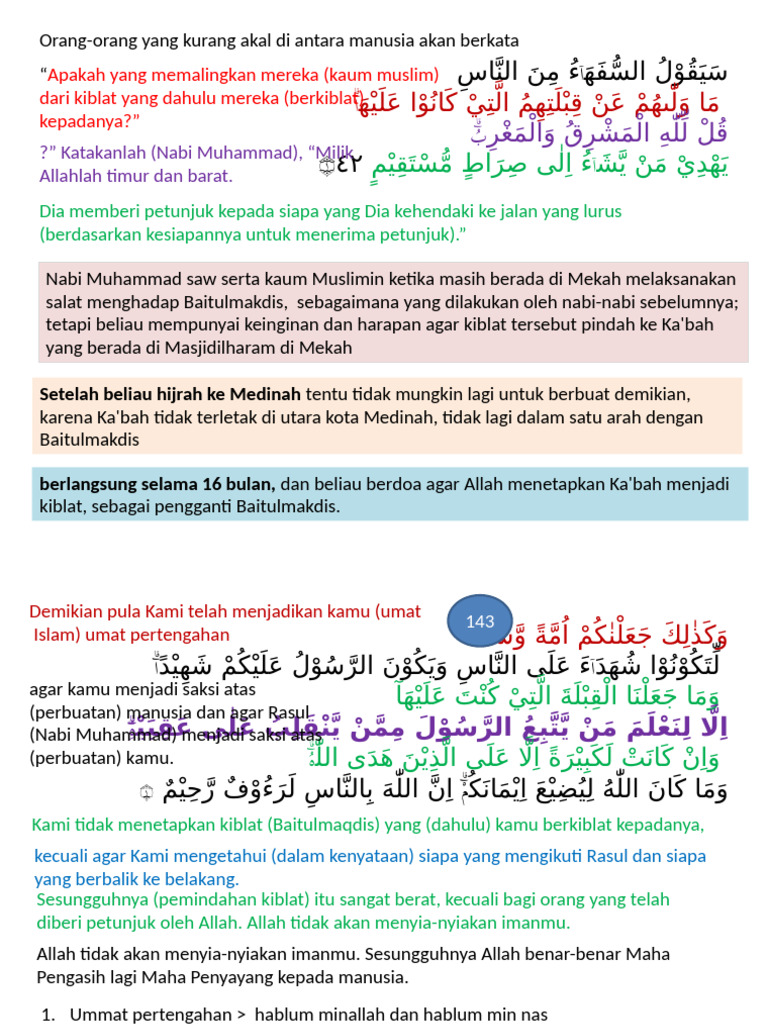 Orang-orang yang kurang akal di antara manusia akan berkata
سَيَقُوْلُ السُّفَهَاۤءُ مِنَ النَّاسِ
“Apakah yang memalingkan mereka (kaum muslim)
dari kiblat yang dahulu mereka (berkiblat)
kepadanya?”
مَا وَلّٰىهُمْ عَنْ قِبْلَتِهِمُ الَّتِيْ كَانُوْا عَلَيْهَاۗ
قُلْ لِّلّٰهِ الْمَشْرِقُ وَالْمَغْرِبُۗ
?” Katakanlah (Nabi Muhammad), “Milik
Allahlah timur dan barat.
يَهْدِيْ مَنْ يَّشَاۤءُ اِلٰى صِرَاطٍ مُّسْتَقِيْمٍ ١٤٢
Dia memberi petunjuk kepada siapa yang Dia kehendaki ke jalan yang lurus
(berdasarkan kesiapannya untuk menerima petunjuk).”
Nabi Muhammad saw serta kaum Muslimin ketika masih berada di Mekah melaksanakan
salat menghadap Baitulmakdis, sebagaimana yang dilakukan oleh nabi-nabi sebelumnya;
tetapi beliau mempunyai keinginan dan harapan agar kiblat tersebut pindah ke Ka'bah
yang berada di Masjidilharam di Mekah
Setelah beliau hijrah ke Medinah tentu tidak mungkin lagi untuk berbuat demikian,
karena Ka'bah tidak terletak di utara kota Medinah, tidak lagi dalam satu arah dengan
Baitulmakdis
berlangsung selama 16 bulan, dan beliau berdoa agar Allah menetapkan Ka'bah menjadi
kiblat, sebagai pengganti Baitulmakdis.
Demikian pula Kami telah menjadikan kamu (umat
Islam) umat pertengahan
143
وَكَذٰلِكَ جَعَلْنٰكُمْ اُمَّةً
لِّتَكُوْنُوْا شُهَدَاۤءَ عَلَى النَّاسِ وَيَكُوْنَ الرَّسُوْلُ عَلَيْكُمْ شَهِيْدًاۗ
agar kamu menjadi saksi atas
(perbuatan) manusia dan agar Rasul
(Nabi Muhammad) menjadi saksi atas
(perbuatan) kamu.
وَمَا جَعَلْنَا الْقِبْلَةَ الَّتِيْ كُنْتَ عَلَيْهَآ
اِلَّا لِنَعْلَمَ مَنْ يَّتَّبِعُ الرَّسُوْلَ مِمَّنْ يَّنْقَلِبُ عَلٰى عَقِبَيْهِۗ
وَاِنْ كَانَتْ لَكَبِيْرَةً اِلَّا عَلَى الَّذِيْنَ هَدَى اللّٰهُۗ
وَمَا كَانَ اللّٰهُ لِيُضِيْعَ اِيْمَانَكُمْۗ اِنَّ اللّٰهَ بِالنَّاسِ لَرَءُوْفٌ رَّحِيْمٌ
Kami tidak menetapkan kiblat (Baitulmaqdis) yang (dahulu) kamu berkiblat kepadanya,
kecuali agar Kami mengetahui (dalam kenyataan) siapa yang mengikuti Rasul dan siapa
yang berbalik ke belakang.
Sesungguhnya (pemindahan kiblat) itu sangat berat, kecuali bagi orang yang telah
diberi petunjuk oleh Allah. Allah tidak akan menyia-nyiakan imanmu.
Allah tidak akan menyia-nyiakan imanmu. Sesungguhnya Allah benar-benar Maha
Pengasih lagi Maha Penyayang kepada manusia.
1. Ummat pertengahan > hablum minallah dan hablum min nas